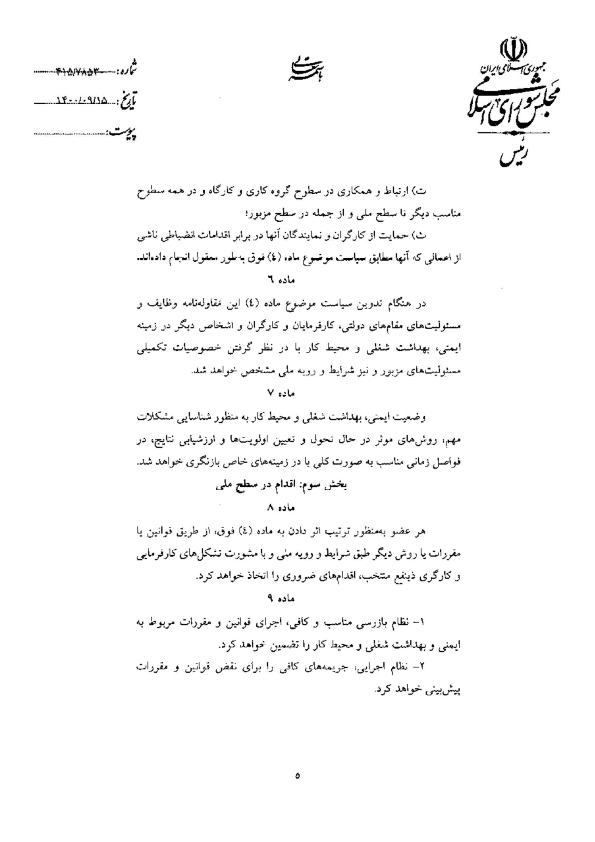 جمهوری اسلامی ایران
مجلس شورای اسلامی
رئیس
باسمه تعالی
شماره: ۴۱۵/۷۸۵۳
تاریخ: ۱۴۰۰/۰۹/۱۵
پیوست:
ت) ارتباط و همکاری در سطوح گروه کاری و کارگاه و در همه سطوح
مناسب دیگر تا سطح ملی و از جمله در سطح مزبور؛
ث) حمایت از کارگران و نمایندگان آنها در برابر اقدامات انضباطی ناشی
از اعمالی که آنها مطابق سیاست موضوع ماده (۴) فوق به‌طور معقول انجام داده‌اند.
ماده ۶
در هنگام تدوین سیاست موضوع ماده (۴) این مقاوله‌نامه وظایف و
مسئولیت‌های مقام‌های دولتی، کارفرمایان و کارگران و اشخاص دیگر در زمینه
ایمنی، بهداشت شغلی و محیط کار با در نظر گرفتن خصوصیات تکمیلی
مسئولیت‌های مزبور و نیز شرایط و رویه ملی مشخص خواهد شد.
ماده ۷
وضعیت ایمنی، بهداشت شغلی و محیط کار به منظور شناسایی مشکلات
مهم، روش‌های موثر در حال تحول و تعیین اولویت‌ها و ارزشیابی نتایج، در
فواصل زمانی مناسب به صورت کلی یا در زمینه‌های خاص بازنگری خواهد شد.
بخش سوم: اقدام در سطح ملی
ماده ۸
هر عضو به‌منظور ترتیب اثر دادن به ماده (۴) فوق، از طریق قوانین یا
مقررات یا روش دیگر طبق شرایط و رویه ملی و با مشورت تشکل‌های کارفرمایی
و کارگری ذینفع منتخب، اقدام‌های ضروری را اتخاذ خواهد کرد.
ماده ۹
۱- نظام بازرسی مناسب و کافی، اجرای قوانین و مقررات مربوط به
ایمنی و بهداشت شغلی و محیط کار را تضمین خواهد کرد.
۲- نظام اجرایی، جریمه‌های کافی را برای نقض قوانین و مقررات
پیش‌بینی خواهد کرد.
۵